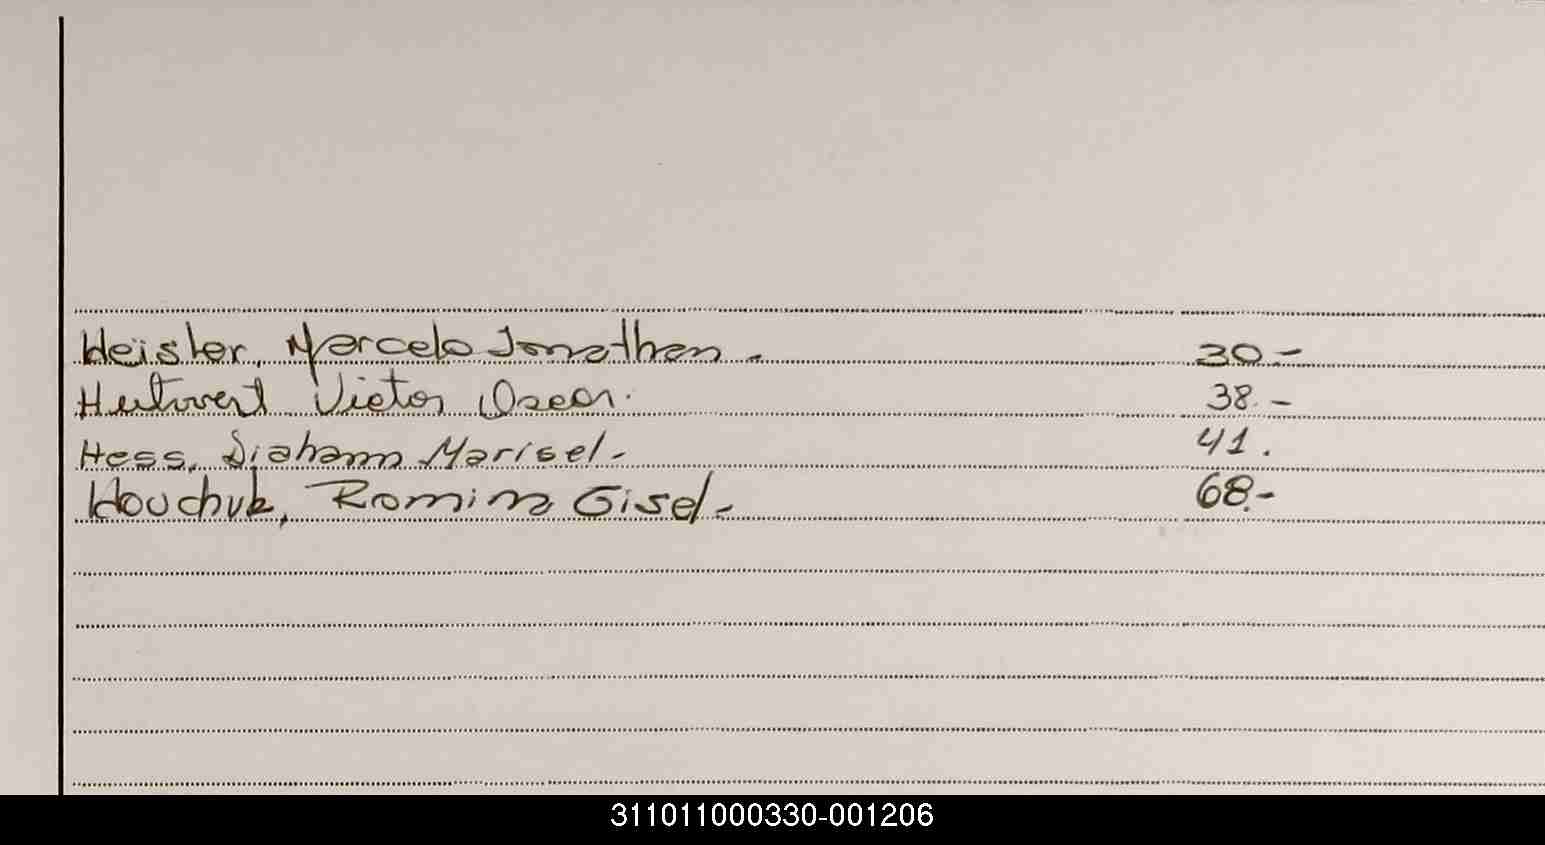 Heisler, Marcelo Jonathan. 30.-
Victor Oscar. 38.-
Hess, Diahann Marisel.- 41.
Houchuk, Romina Gisel.- 68.-
311011000330-001206